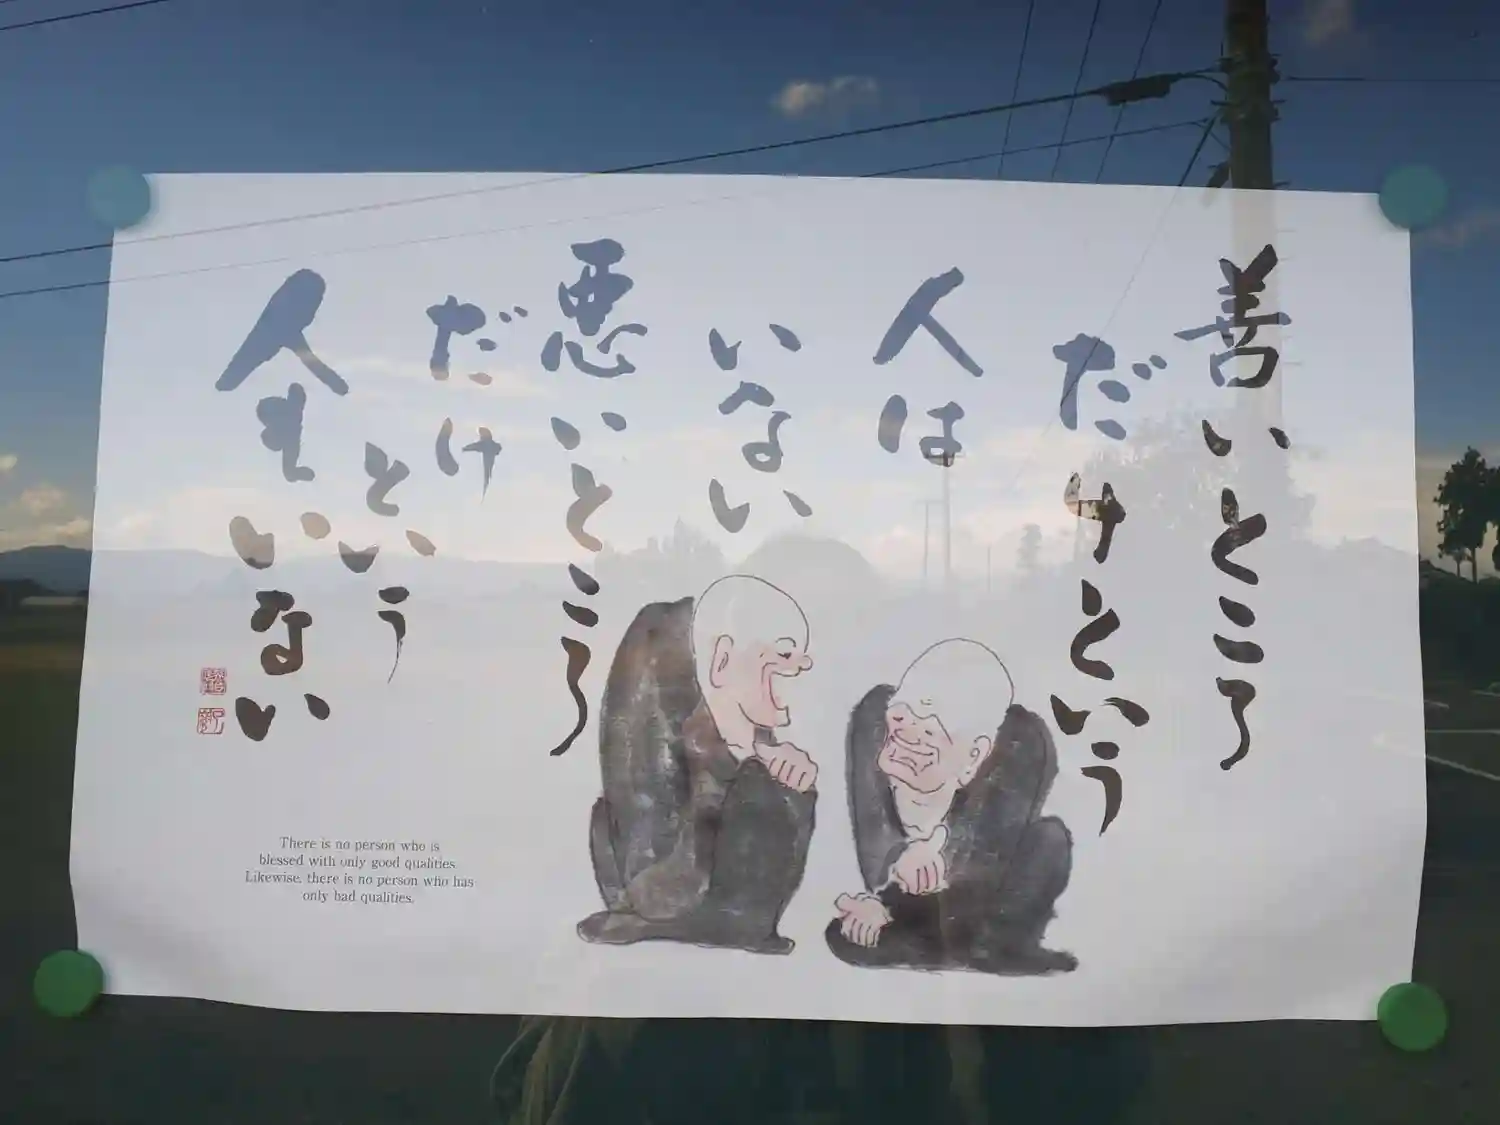 善いところ
だけという
人は
いない
悪いところ
だけ
という
人もいない
There is no person who is
blessed with only good qualities.
Likewise, there is no person who has
only bad qualities.